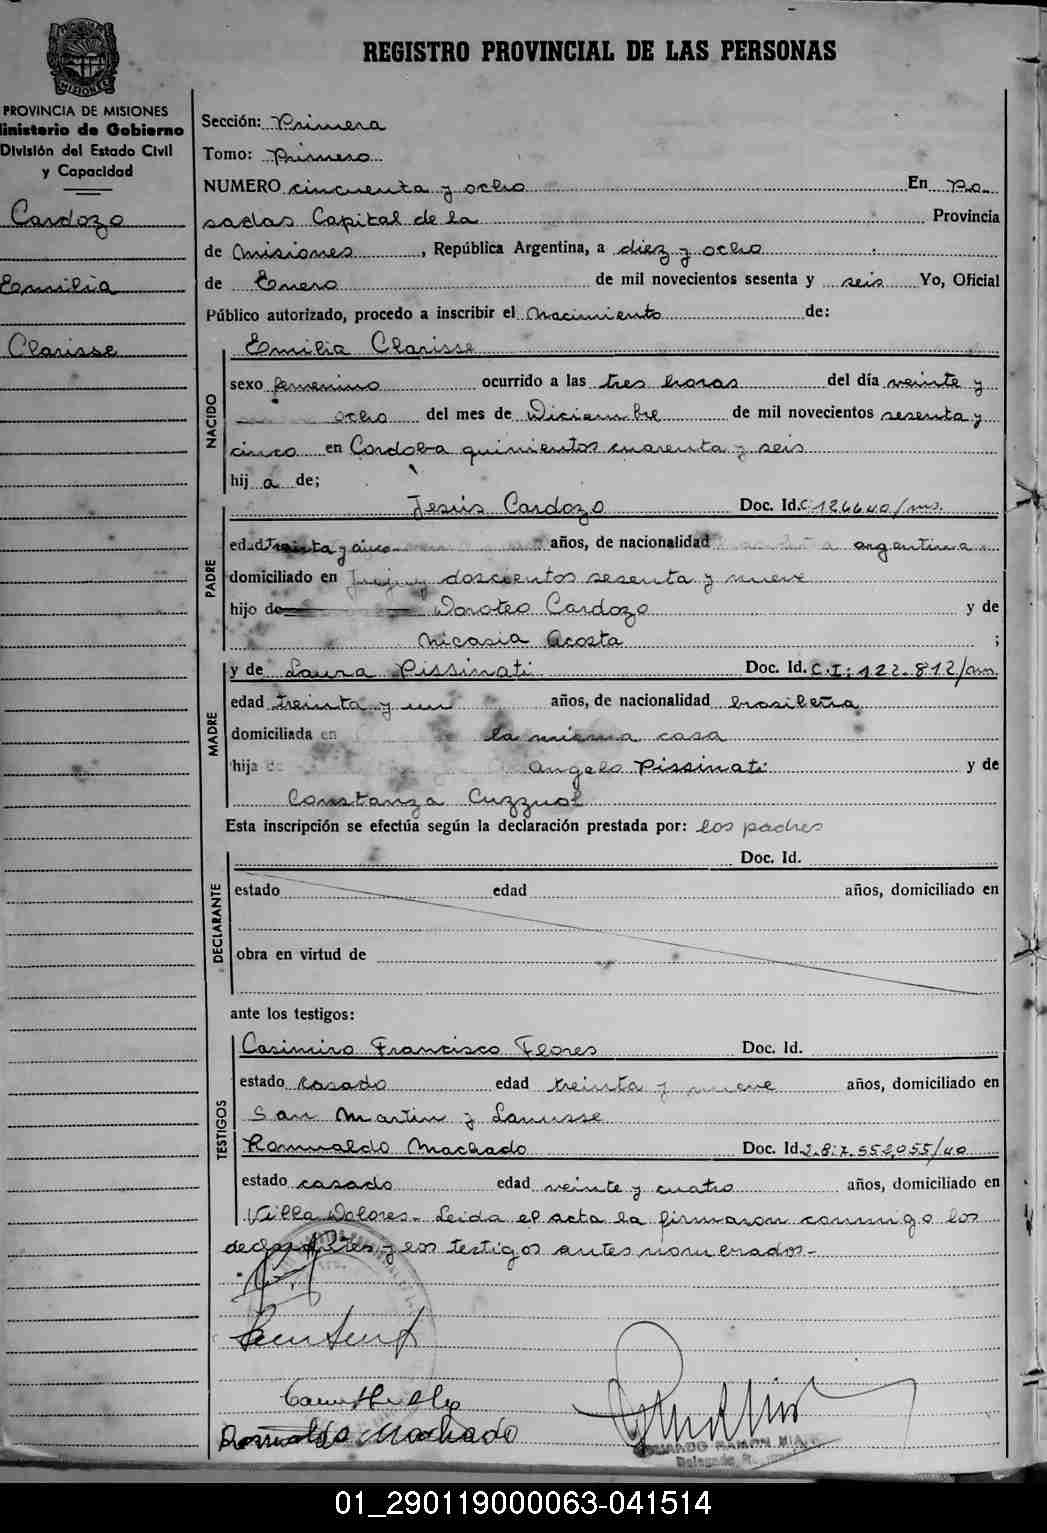 REGISTRO PROVINCIAL DE LAS PERSONAS
MISIONES
PROVINCIA DE MISIONES
Ministerio de Gobierno
División del Estado Civil
y Capacidad
Cardozo
Emilia
Clarisse
Sección: Primera
Tomo: Primero
NUMERO cincuenta y ocho En Po-
sadas Capital de la Provincia
de Misiones, República Argentina, a diez y ocho
de Enero de mil novecientos sesenta y seis Yo, Oficial
Público autorizado, procedo a inscribir el Nacimiento de:
NACIDO
Emilia Clarisse
sexo femenino ocurrido a las tres horas del día veinte y
ocho del mes de Diciembre de mil novecientos sesenta y
cinco en Cordoba quinientos cuarenta y seis
hij a de;
PADRE
Jesús Cardozo Doc. Id. C 126640/ms.
edad treinta y cinco años, de nacionalidad argentina
domiciliado en Jujuy doscientos sesenta y nueve
hijo de Doroteo Cardozo y de
Nicasia Acosta ;
MADRE
y de Laura Pissinati Doc. Id. C.I: 122.812/ms.
edad treinta y un años, de nacionalidad brasileña
domiciliada en la misma casa
hija de Angelo Pissinati y de
Constanza Cuzzuol
Esta inscripción se efectúa según la declaración prestada por: los padres
DECLARANTE
Doc. Id.
estado edad años, domiciliado en
obra en virtud de
ante los testigos:
TESTIGOS
Casimiro Francisco Flores Doc. Id.
estado casado edad treinta y nueve años, domiciliado en
San Martin y Lanusse
Romualdo Machado Doc. Id. 2.8.7.552,055/40
estado casado edad veinte y cuatro años, domiciliado en
Villa Dolores. Leida el acta la firmaron conmigo los
declarantes y los testigos antes nomerados.-
Romualdo Machado
01_290119000063-041514